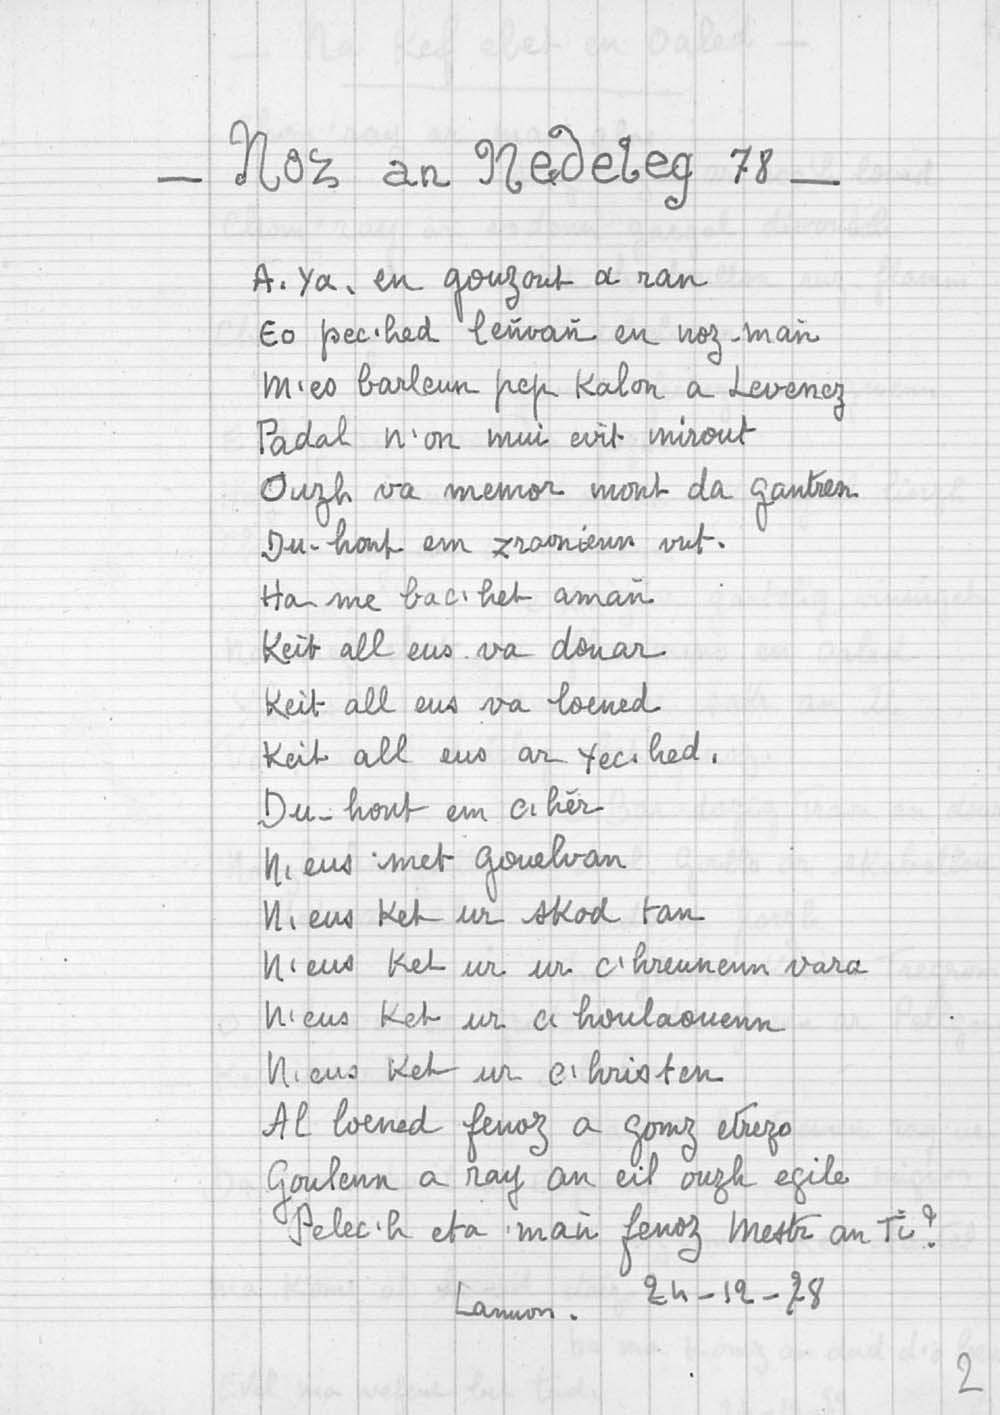 — Noz an Nedeleg 78 —
A. Ya, en gouzout a ran
Eo pec'hed leñvañ en noz-mañ
M'eo barleun pep Kalon a Levenez
Padal n'on mui evit mirout
Ouzh va memor mont da gantren
Du-hont em zraonienn vut.
Ha me bac'het amañ
Keit all eus va douar
Keit all eus va loened
Keit all eus ar yec'hed.
Du-hont em c'hêr
N'eus 'met gouelvan
N'eus Ket ur skod tan
N'eus Ket ur ur c'hreunenn vara
N'eus Ket ur c'houlaouenn
N'eus Ket ur c'hristen
Al loened fenoz a gomz etrezo
Goulenn a ray an eil ouzh egile
Pelec'h eta 'mañ fenoz Mestr an Ti?
Lannon. 24-12-78
2